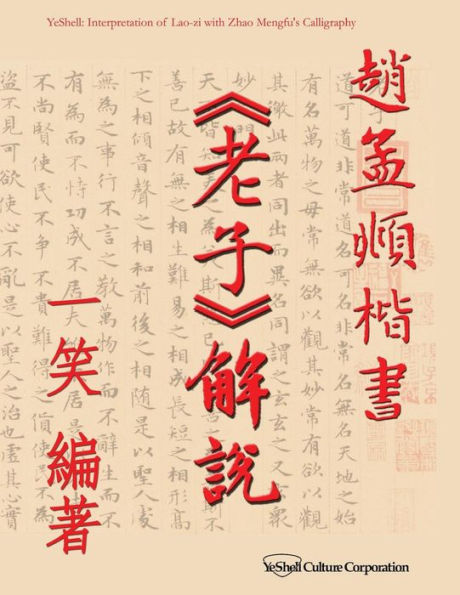 YeShell: Interpretation of Lao-zi with Zhao Mengfu's Calligraphy
趙孟頫楷書
《老子》解說
一笑 編著
道可道非常道名可名非常名無名天地之始
有名萬物之母常無欲以觀其妙常有欲以觀
其徼此兩者同出而異名同謂之玄玄之又玄衆
妙門
天下皆知
善已故有無之相生難易之相成長短之相形高
下之相傾音聲之相和前後之相随是以聖人處
無為之事行不言之教萬物作而不辭生而不
有為而不恃功成不居夫居是
不尚賢使民不争不貴難得之貨使民不
盗不見可欲使心不亂是以聖人之治也虚其心實
YeShell Culture Corporation